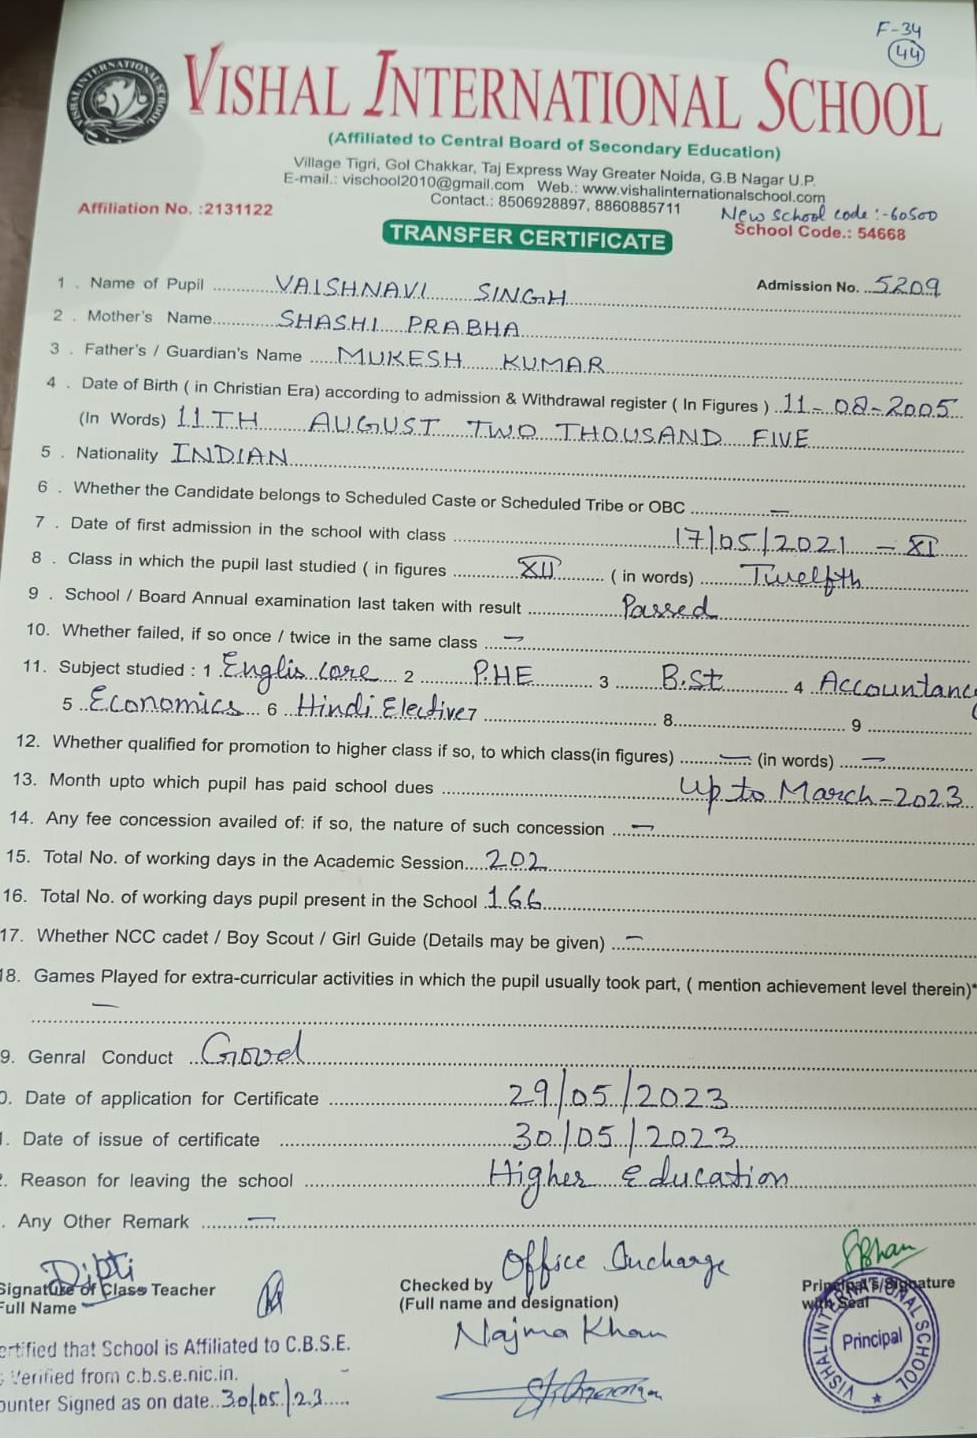 F-34
44
VISHAL INTERNATIONAL SCHOOL
VISHAL INTERNATIONAL SCHOOL
(Affiliated to Central Board of Secondary Education)
Village Tigri, Gol Chakkar, Taj Express Way Greater Noida, G.B Nagar U.P.
E-mail.: vischool2010@gmail.com Web.: www.vishalinternationalschool.com
Contact.: 8506928897, 8860885711
New School code :- 60500
Affiliation No. :2131122
School Code.: 54668
TRANSFER CERTIFICATE
1 . Name of Pupil VAISHNAVI SINGH Admission No. 5209
2 . Mother's Name SHASHI PRABHA
3 . Father's / Guardian's Name MUKESH KUMAR
4 . Date of Birth ( in Christian Era) according to admission & Withdrawal register ( In Figures ) 11-08-2005
(In Words) 11TH AUGUST TWO THOUSAND FIVE
5 . Nationality INDIAN
6 . Whether the Candidate belongs to Scheduled Caste or Scheduled Tribe or OBC —
7 . Date of first admission in the school with class 17/05/2021 - XI
8 . Class in which the pupil last studied ( in figures XII ( in words) Twelfth
9 . School / Board Annual examination last taken with result Passed
10. Whether failed, if so once / twice in the same class —
11. Subject studied : 1 Englis core 2 P.HE 3 B.St 4 Accountanc
5 Economics 6 Hindi Elective 7 8 9
12. Whether qualified for promotion to higher class if so, to which class(in figures) — (in words) —
13. Month upto which pupil has paid school dues Up to March-2023
14. Any fee concession availed of: if so, the nature of such concession —
15. Total No. of working days in the Academic Session 202
16. Total No. of working days pupil present in the School 166
17. Whether NCC cadet / Boy Scout / Girl Guide (Details may be given) —
18. Games Played for extra-curricular activities in which the pupil usually took part, ( mention achievement level therein)*
—
9. Genral Conduct Good
0. Date of application for Certificate 29/05/2023
. Date of issue of certificate 30/05/2023
. Reason for leaving the school Higher Education
. Any Other Remark —
Dipti
Office Incharge
Signature of Class Teacher
Checked by
Principal's Signature
Full Name
(Full name and designation)
with Seal
Najma Khan
ertified that School is Affiliated to C.B.S.E.
Verified from c.b.s.e.nic.in.
ounter Signed as on date..30/05/23
VISHAL INTERNATIONAL SCHOOL
Principal